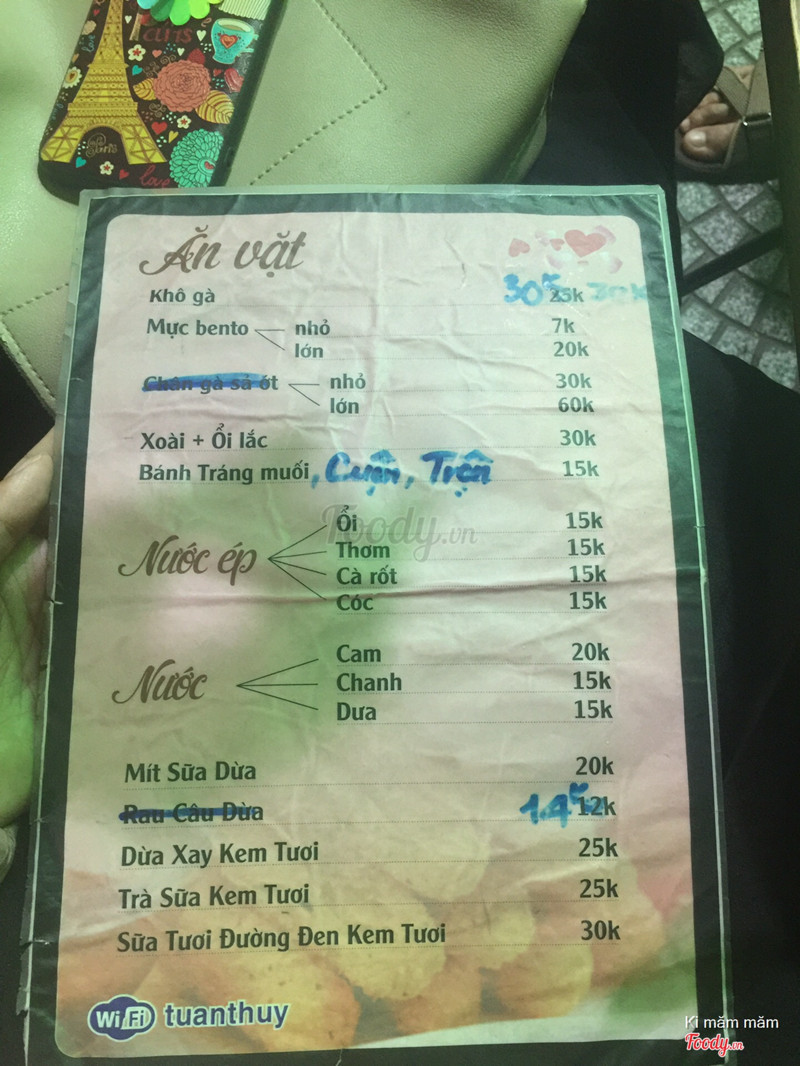 Paris
love
Paris
love
Ăn vặt
Khô gà 30k 25k 30k
Mực bento nhỏ 7k
lớn 20k
Chân gà sả ớt nhỏ 30k
lớn 60k
Xoài + Ổi lắc 30k
Bánh Tráng muối, Cuộn, Trộn 15k
Foody.vn
Nước ép
Ổi 15k
Thơm 15k
Cà rốt 15k
Cóc 15k
Nước
Cam 20k
Chanh 15k
Dưa 15k
Mít Sữa Dừa 20k
Rau Câu Dừa 14k 12k
Dừa Xay Kem Tươi 25k
Trà Sữa Kem Tươi 25k
Sữa Tươi Đường Đen Kem Tươi 30k
WiFi tuanthuy
Ki măm măm
Foody.vn